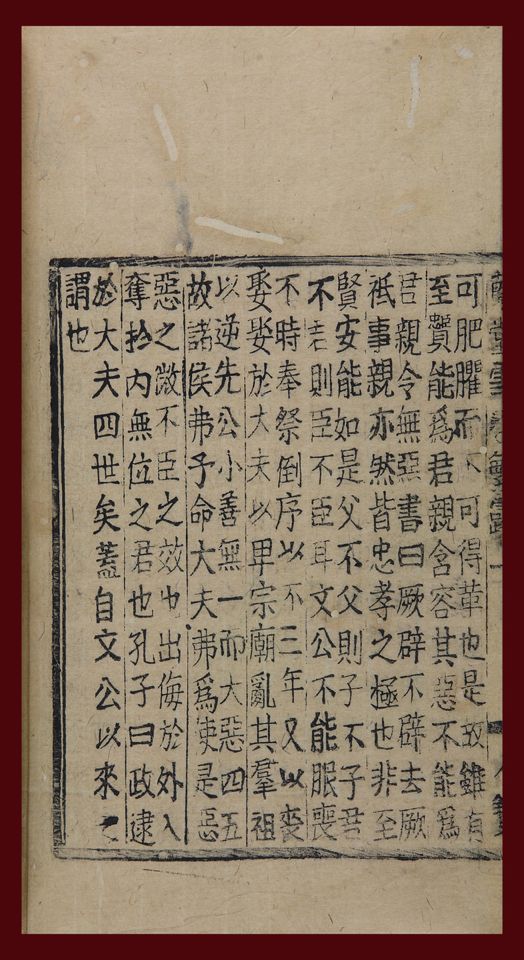 可肥臞而不可得革也是故雖有
至賢能爲君親含容其惡不能爲
君親令無惡書曰厥辟不辟去厥
祇事親亦然皆忠孝之極也非至
賢安能如是父不父則子不子君
不君則臣不臣耳文公不能服喪
不時奉祭倒序以不三年又以喪
娶娶於大夫以卑宗廟亂其羣祖
以逆先公小善無一而大惡四五
故諸侯弗予命大夫弗爲使是惡
惡之徵不臣之效也出侮於外入
奪於内無位之君也孔子曰政逮
於大夫四世矣蓋自文公以來之
謂也